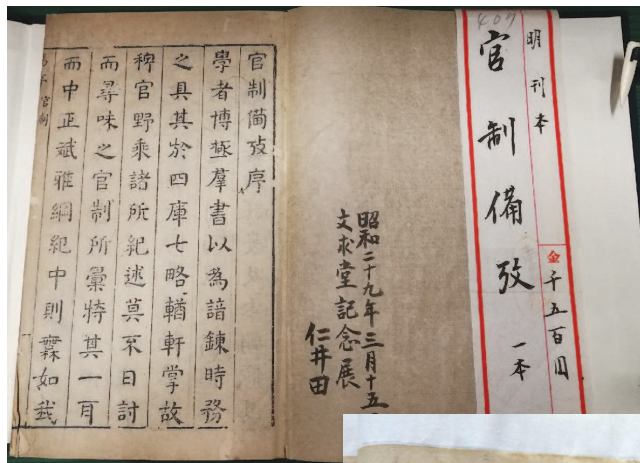 407
明刊本
官制備攷
一本
金千五百圓
昭和二十九年三月十五
文求堂記念展
仁井田
官制備攷序
學者博極羣書以為諳鍊時務
之具其於四庫七略輶軒掌故
稗官野乘諸所紀述莫不日討
而尋味之官制所彙特其一耳
而中正斌雅綱紀中則霖如我